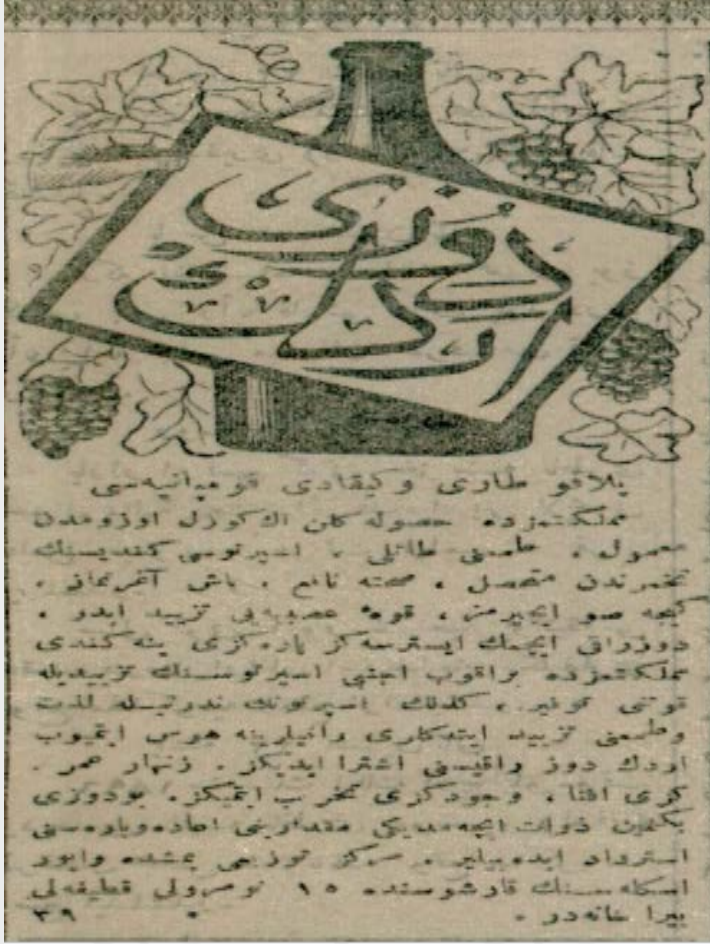 دوزی
اردك
پلافو طاری وكیقادی قومپانیه‌سی
مملكتمزده حصوله كلن اك كوزل اوزومدن
معمول، طعمی طاتلی، اسپرتوسی كندیسنك
تخمرندن متحصل، صحته نافع، باش آغرتماز،
كیجه صو ایچیرمز، قوهٔ عصبیه‌یی تزیید ایدر.
دوزراقی ایچمك ایسترسه‌كز پاره‌كزی ینه كندی
مملكتمزده براقوب اجنبی اسپرتوسنك تزییدیله
قوتی توفیر، كذلك اسپرتونك ندرتیله لذت
وطعمی تزیید ایتدكلری راقیلرینه هوس ایتمیوب
اردك دوز راقیسی اشترا ایدیكز. زنهار عمر.
كزی افنا، وجودكزی تخریب ایتمیكز. بودوزی
بكنمین ذوات ایچه‌مدیكی مقدارینی اعاده‌وپاره‌سنی
استرداد ایده‌بیلیر. مركز توزیعی یمشده واپور
اسكله‌سنك قارشوسنده ١٥ نومرولی قطیفه‌لی
بیرا خانه‌در.
٣٩